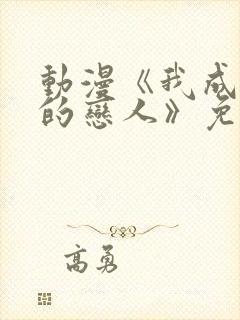 動漫《我成
的戀人》免
高勇